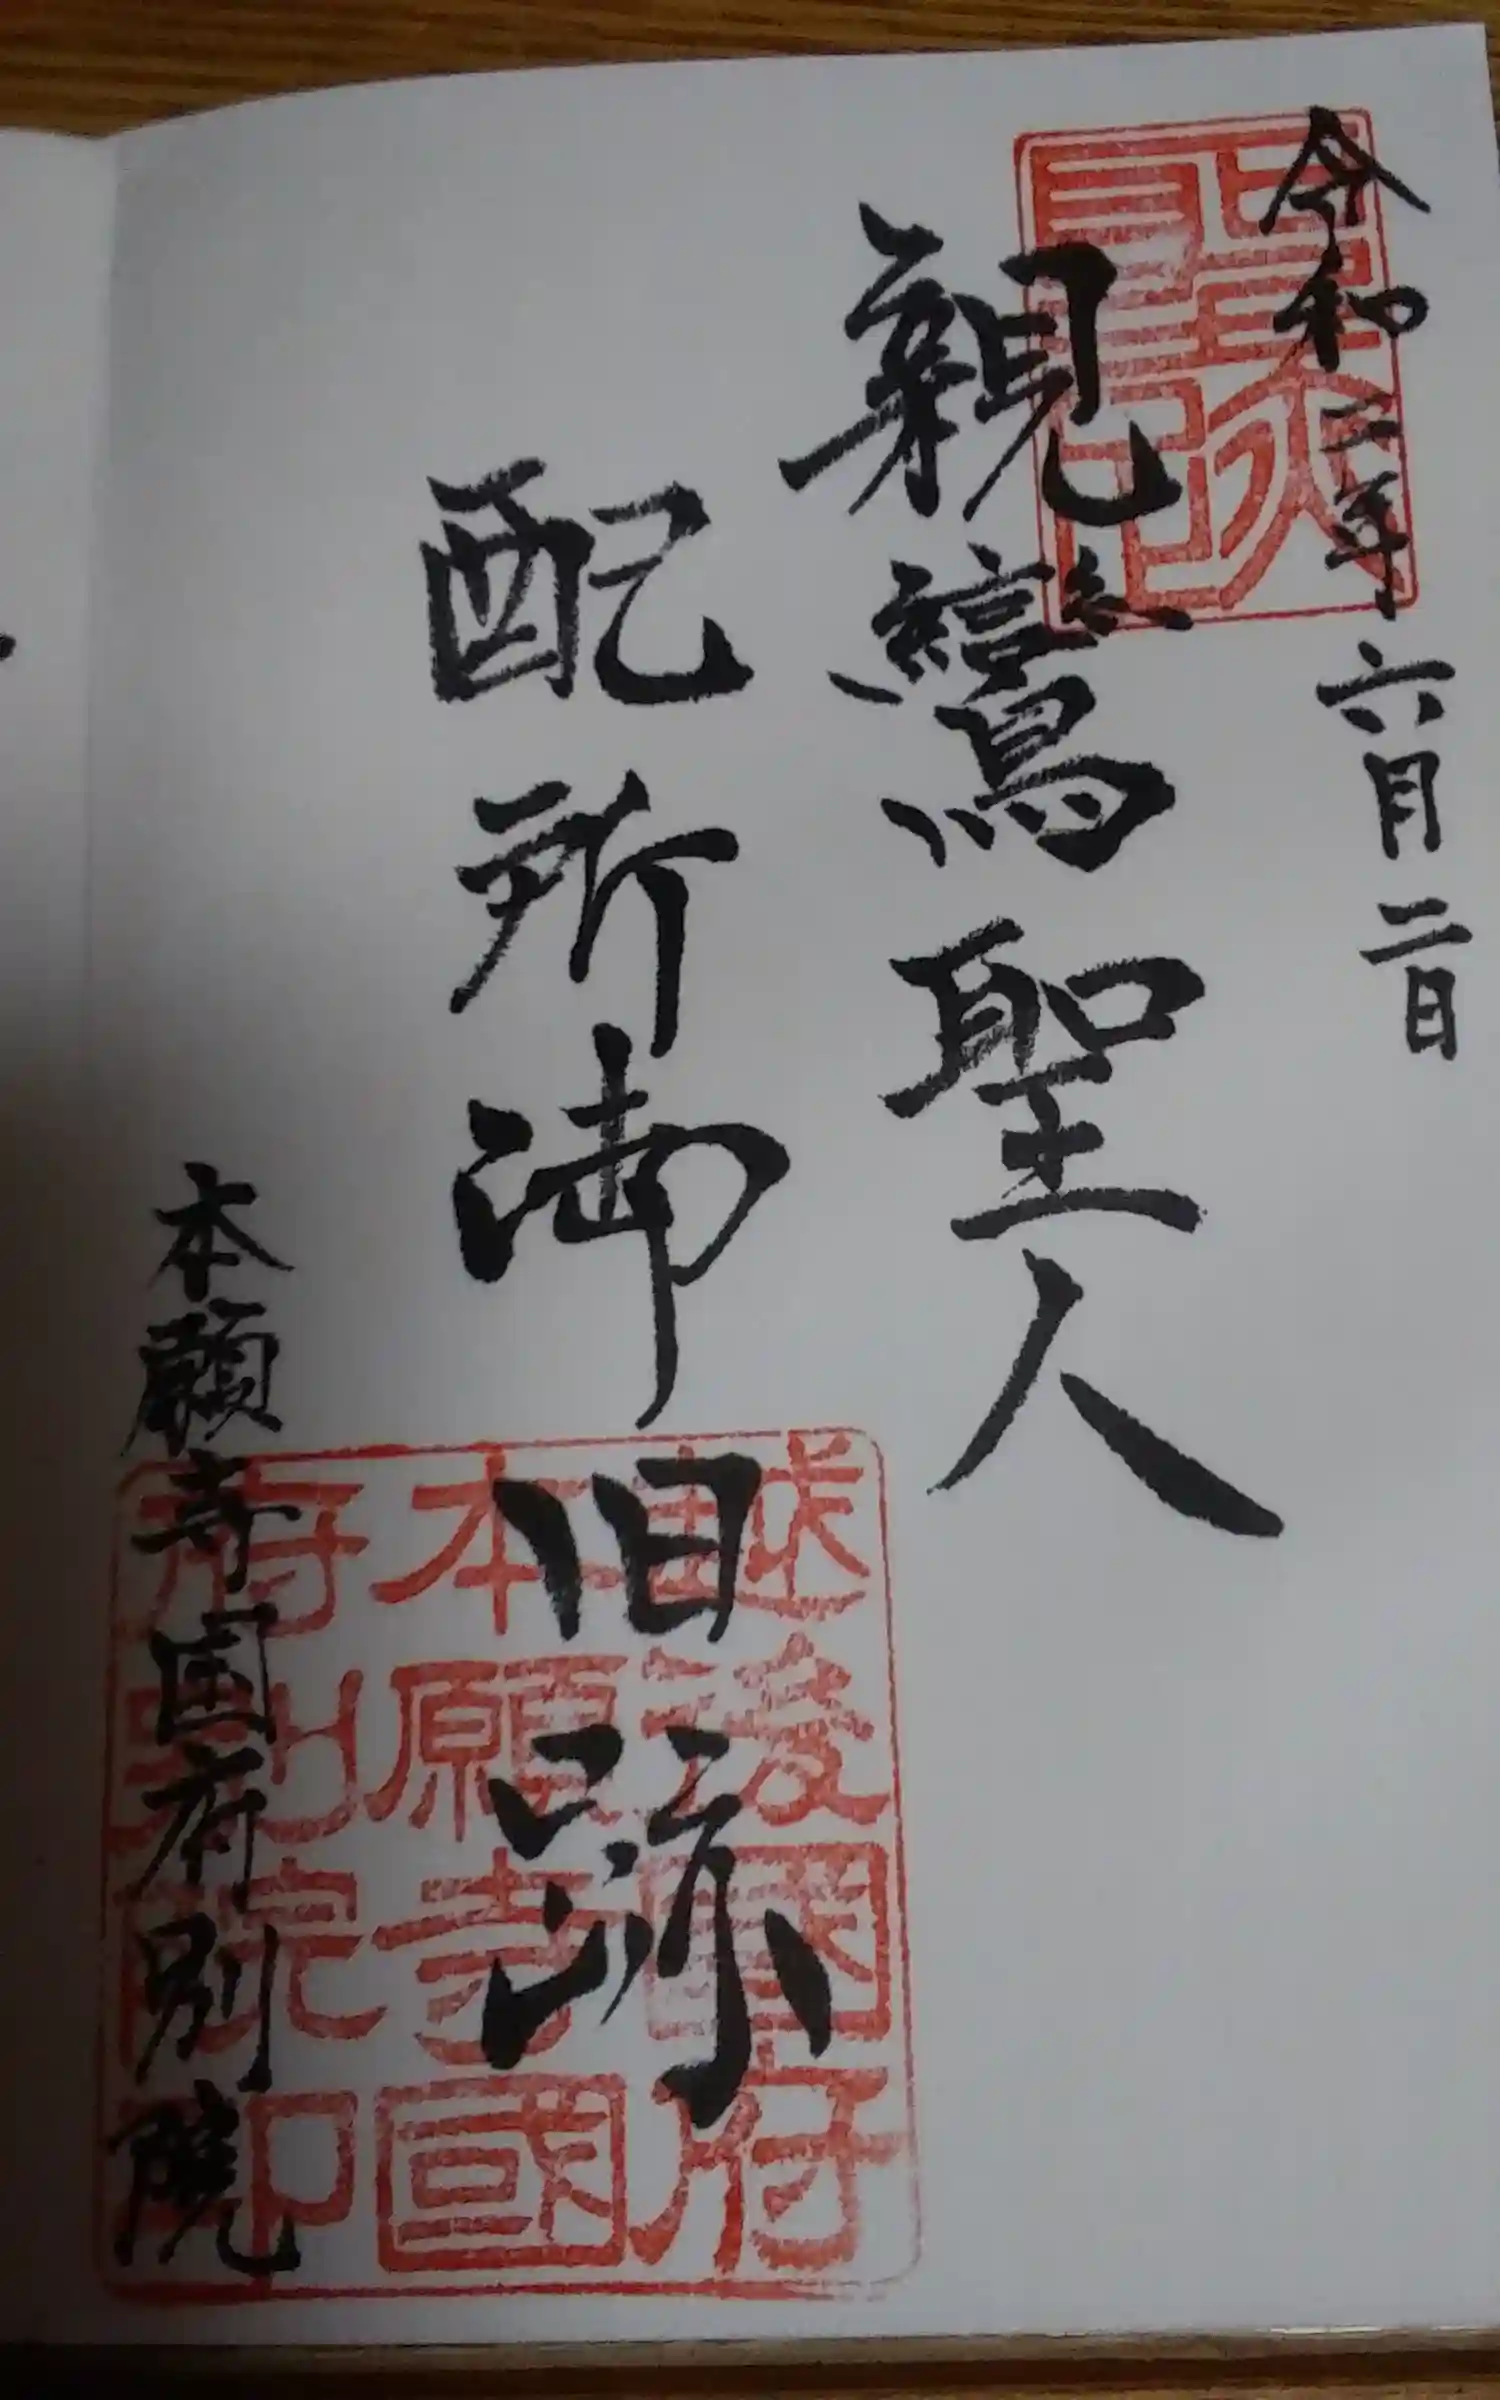 令和二年六月二日
親鸞聖人
配所御旧跡
本願寺国府別院
越後國府
本願寺國
府別院印